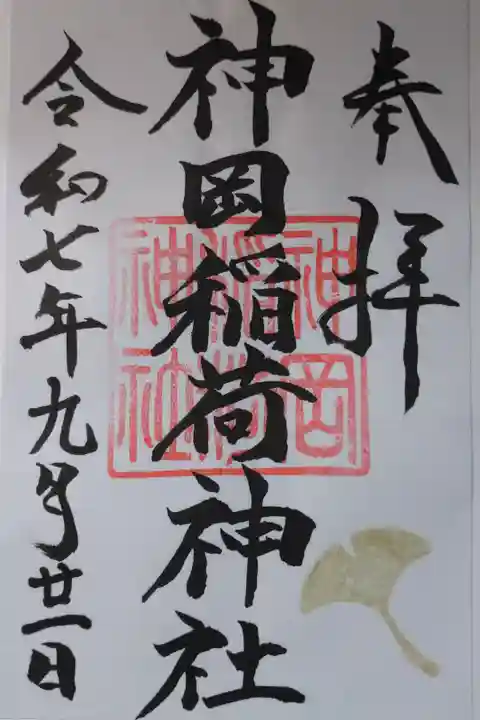 奉拝
神岡稲荷神社
令和七年九月廿一日
神岡
稲荷
神社